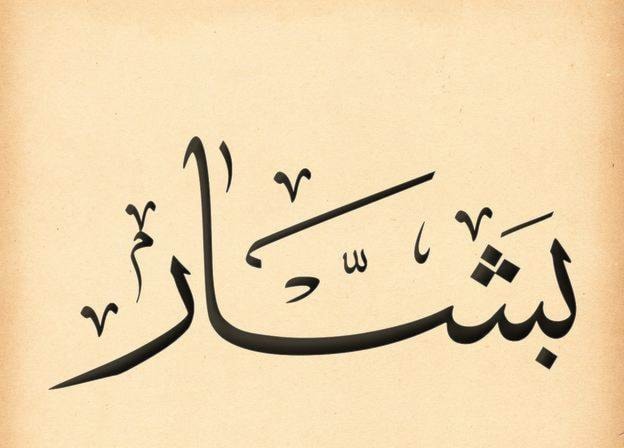 بَشَّار